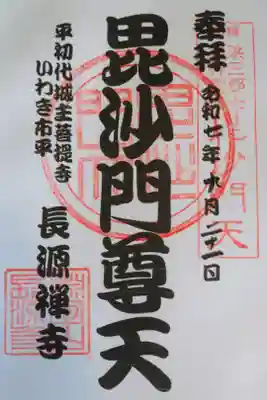 奉拝
令和七年九月二十一日
毘沙門尊天
平初代城主菩提寺
いわき市平
長源禅寺